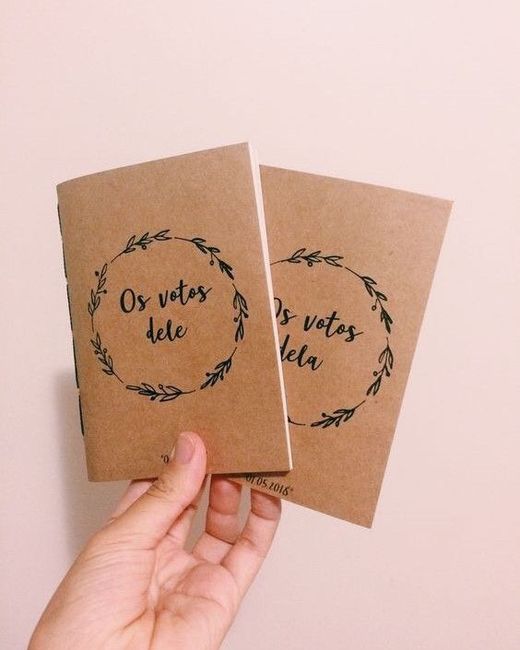 Os votos
dele
Os votos
dela
01.05.2018"